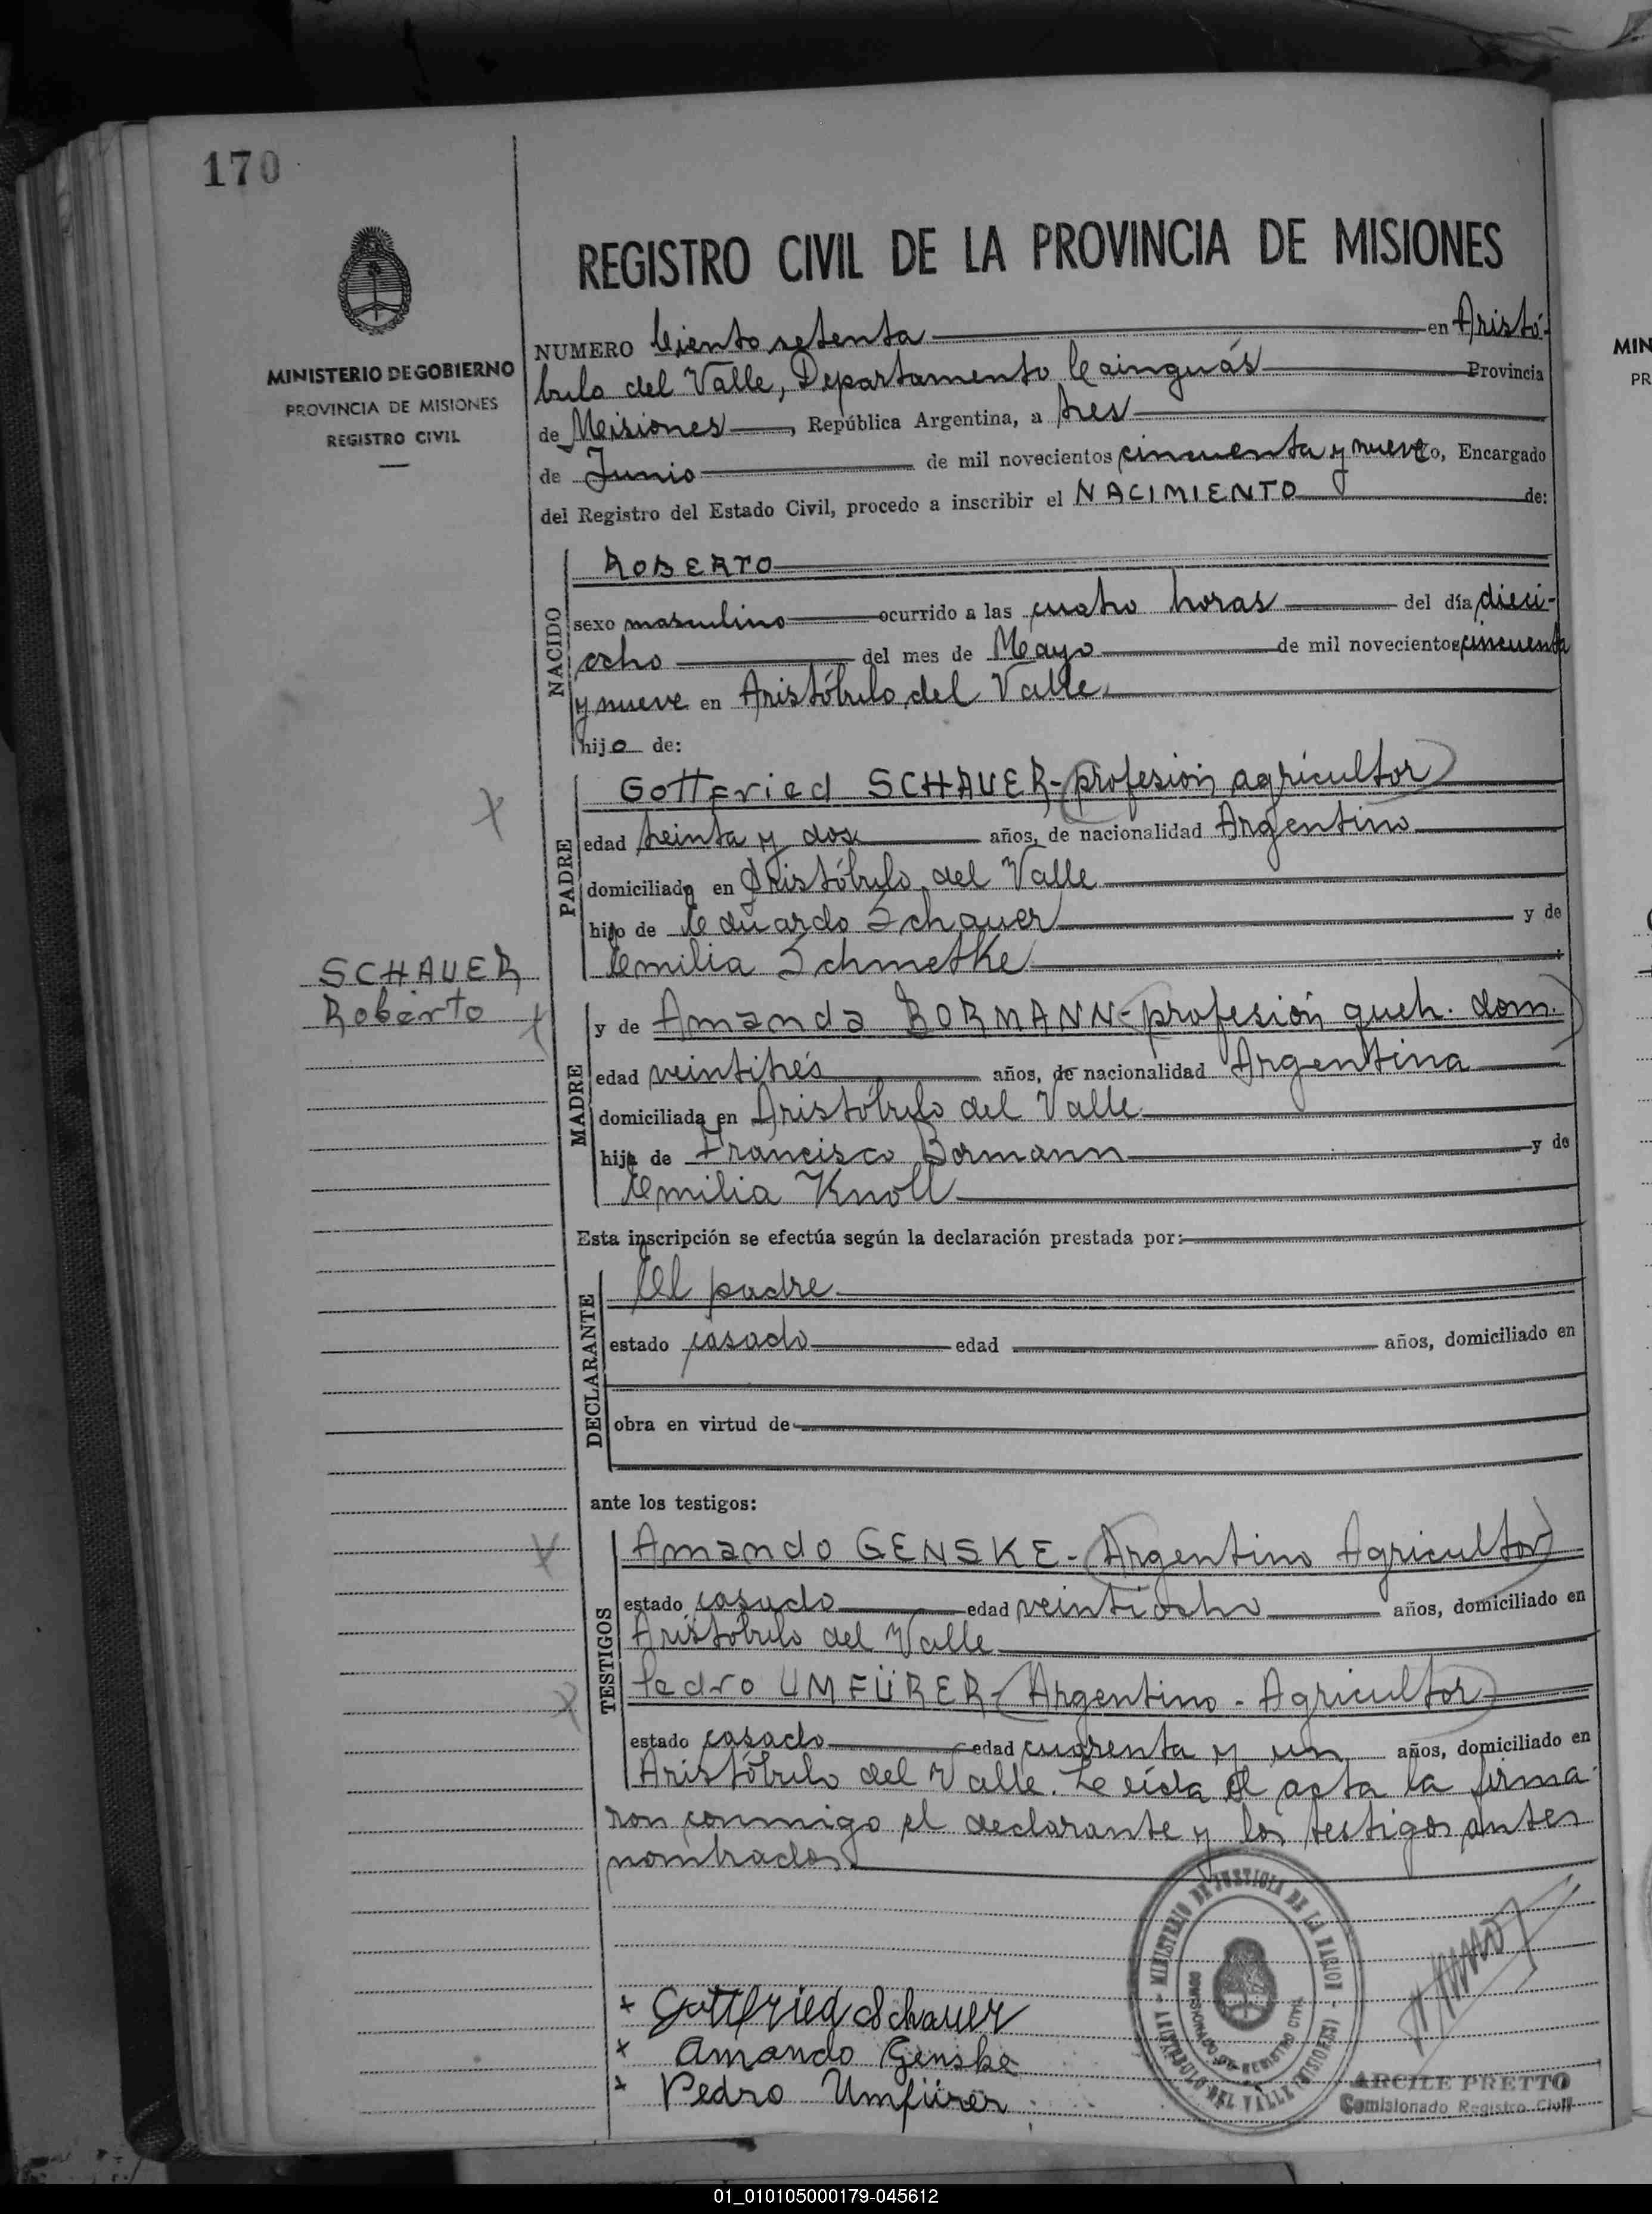 170
MINISTERIO DE GOBIERNO
PROVINCIA DE MISIONES
REGISTRO CIVIL
REGISTRO CIVIL DE LA PROVINCIA DE MISIONES
NUMERO Ciento setenta en Aristó-
bulo del Valle, Departamento Cainguás Provincia
de Misiones, República Argentina, a tres
de Junio de mil novecientos cincuenta y nueve, Encargado
del Registro del Estado Civil, procedo a inscribir el NACIMIENTO de:
NACIDO
ROBERTO
sexo masculino ocurrido a las cuatro horas del día dieci-
ocho del mes de Mayo de mil novecientos cincuenta
y nueve en Aristóbulo del Valle
hijo de:
PADRE
Gottfried SCHAUER-profesión agricultor
edad treinta y dos años, de nacionalidad Argentino
domiciliado en Aristóbulo del Valle
hijo de Eduardo Schauer y de
Emilia Schmetke
SCHAUER
Roberto
MADRE
y de Amanda BORMANN-profesión queh. dom.
edad veintitrés años, de nacionalidad Argentina
domiciliada en Aristóbulo del Valle
hija de Francisco Bormann y de
Emilia Knoll
Esta inscripción se efectúa según la declaración prestada por:
DECLARANTE
El padre
estado casado edad años, domiciliado en
obra en virtud de
ante los testigos:
TESTIGOS
Amando GENSKE-Argentino Agricultor
estado casado edad veintiocho años, domiciliado en
Aristóbulo del Valle
Pedro UMFÜRER-Argentino-Agricultor
estado casado edad cuarenta y un años, domiciliado en
Aristóbulo del Valle. Leída el acta la firma-
ron conmigo el declarante y los testigos antes
nombrados
MINISTERIO DE JUSTICIA DE LA NACION
COMISIONADO DE REGISTRO CIVIL
ARISTOBULO DEL VALLE (MISIONES)
+ Gottfried Schauer
+ Amando Genske
+ Pedro Umfürer
ARCILE PRETTO
Comisionado Registro Civil
MIN
PR
01_010105000179-045612